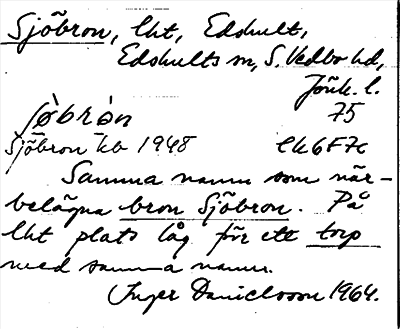 Sjöbron, lht, Edshult,
Edshults sn, S. Vedbo hd,
Jönk. l.
ʃø̀bròn 75
Sjöbron kb 1948 Ek 6F7c
Samma namn som när-
belägna bron Sjöbron. På
lht plats låg förr ett torp
med samma namn.
Inger Danielsson 1964.